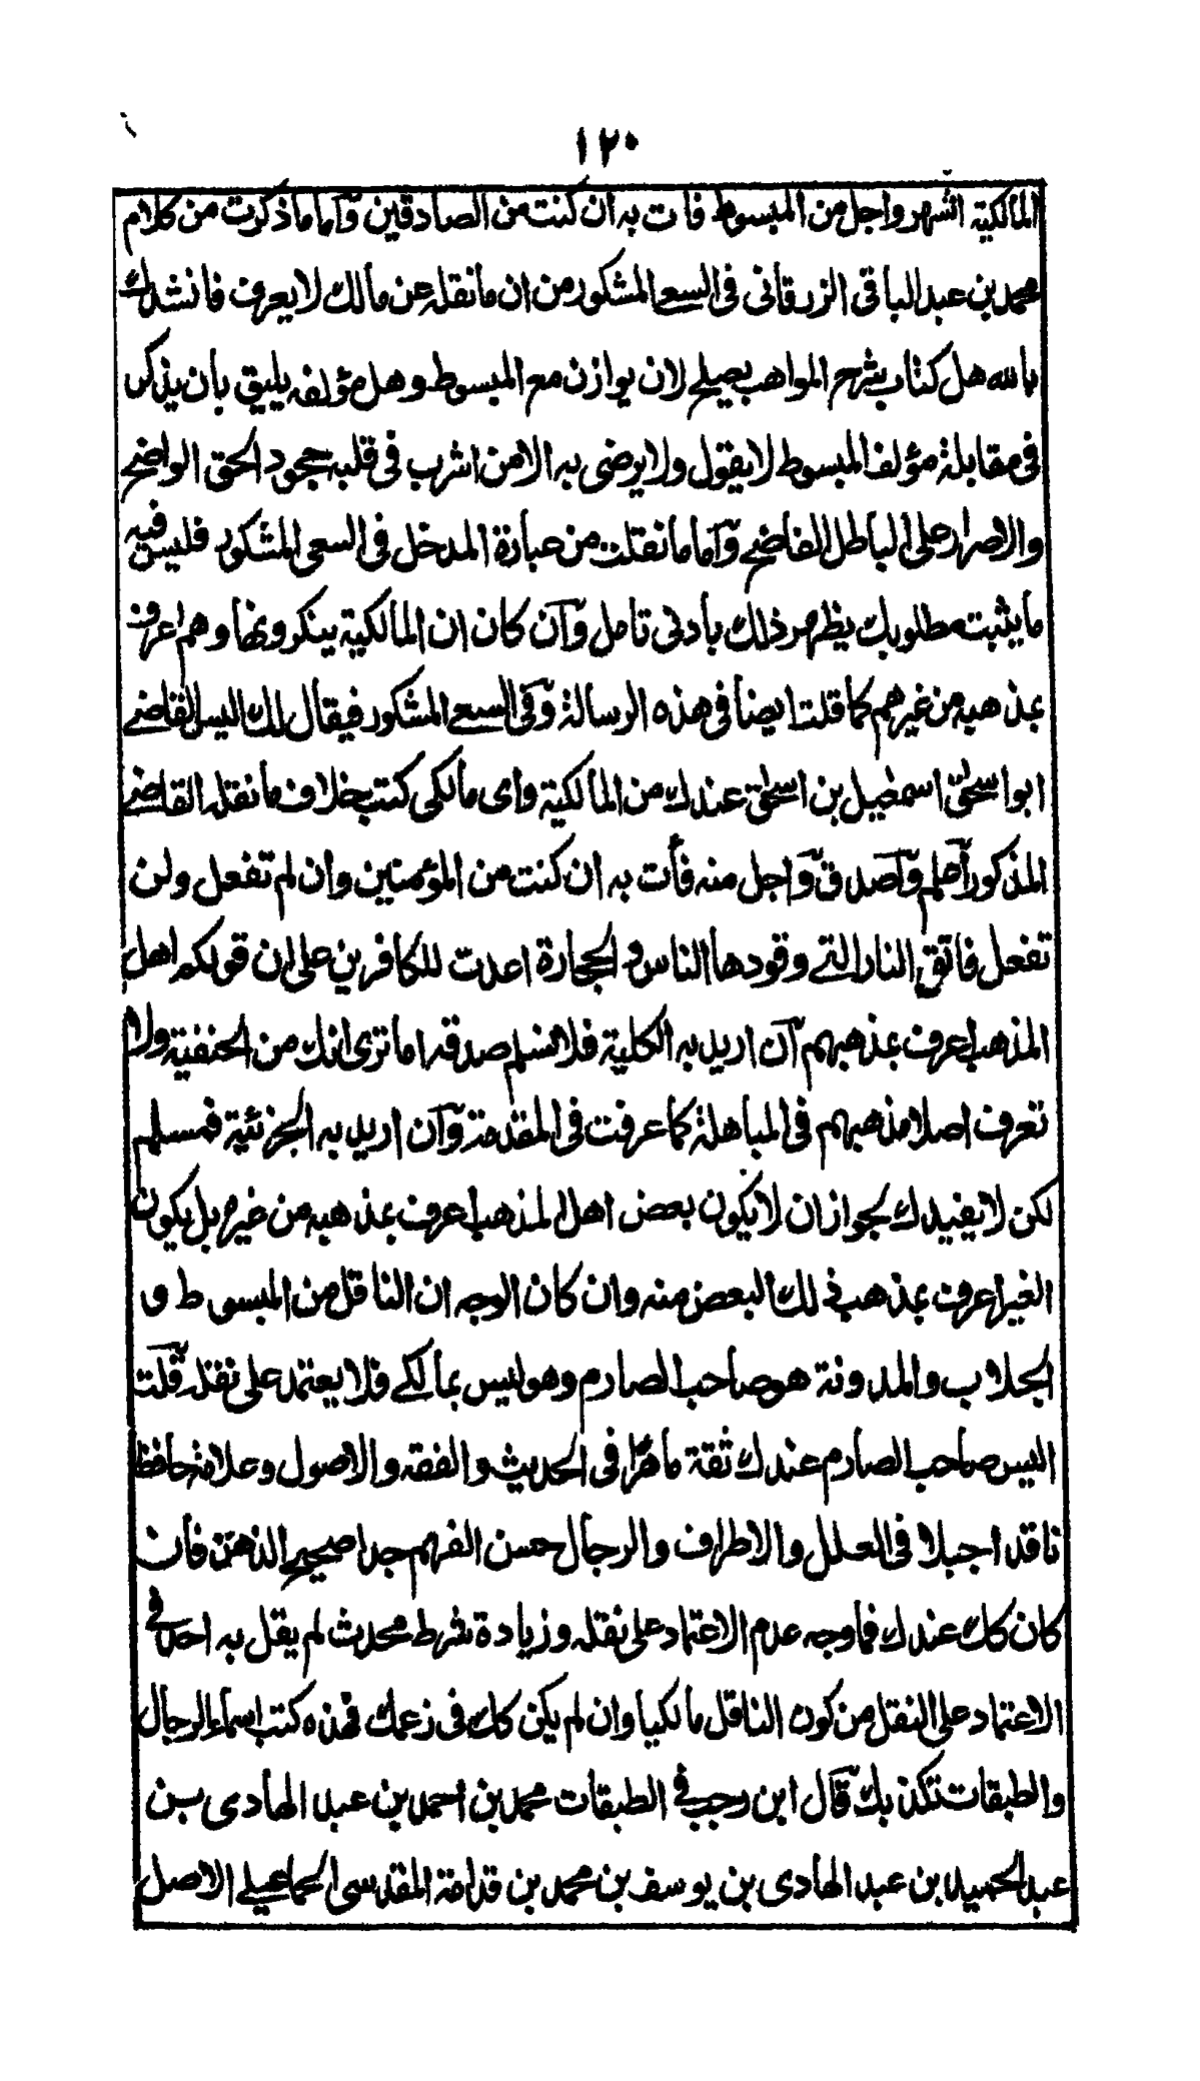 ١٢٠
المالكية اشهر واجل من المبسوط فات به ان كنت من الصادقين وآما ما ذكرت من كلام
محمد بن عبد الباقى الزرقانى فى السعے المشكور من ان ما نقله عن مالك لا يعرف فانشدك
بالله هل كتاب شرح المواهب يصلح لان يوازن مع المبسوط وهل مؤلفه يليق بان يذكر
فى مقابلة مؤلف المبسوط لا يقول ولا يرضى به الا من اشرب فى قلبه جحود الحق الواضح
والاصرار على الباطل الفاضح وآما ما نقلت من عبارة المدخل فى السعى المشكور فليس فيه
ما يثبت مطلوبك يظهر ذلك بادنى تامل وآن كان ان المالكية ينكرونها وهم اعرف
بمذهبه من غيرهم كما قلت ايضا فى هذه الرسالة وفى السعے المشكور فيقال لك اليس القاضے
ابو اسحٰق اسمٰعيل بن اسحٰق عندك من المالكية واى مالكى كتب خلاف ما نقله القاضے
المذكور آعلم وآصدق وآجل منه فأت به ان كنت من المؤمنين وان لم تفعل ولن
تفعل فاتق النار التے وقودها الناس و الحجارة اعدت للكافرين على ان قولكم اهل
المذهب اعرف بمذهبهم آن اريد به الكلية فلا نسلم صدقه اما ترى انك من الحنفية ولا
تعرف اصلا مذهبهم فى المباهلة كما عرفت فى المقدمة وآن اريد به الجزئية فمسلم
لكن لا يفيدك لجواز ان لا يكون بعض اهل المذهب اعرف بمذهبه من غيره بل يكون
الغير اعرف بمذهب ذلك البعض منه وان كان الوجه ان الناقل من المبسوط و
الجلاب والمدونة هو صاحب الصارم وهو ليس بمالكے فلا يعتمد على نقله قلت
اليس صاحب الصارم عندك ثقة ماهرًا فى الحديث والفقه والاصول وعلامة حافظا
ناقدا جبلا فى العلل والاطراف والرجال حسن الفهم جدا صحيح الذهن فان
كان كك عندك فما وجه عدم الاعتماد على نقله وزيادة شرط محدث لم يقل به احد فى
الاعتماد على النقل من كون الناقل مالكيا وان لم يكن كك فى زعمك فهذه كتب اسماء الرجال
والطبقات تكذبك قآل ابن رجب فى الطبقات محمد بن احمد بن عبد الهادى بن
عبد الحميد بن عبد الهادى بن يوسف بن محمد بن قدامة المقدسى الجماعيلے الاصل